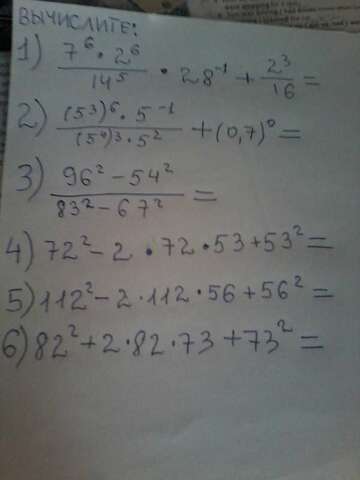 ВЫЧИСЛИТЕ:
1) 7⁶ · 2⁶ / 14⁵ · 28⁻¹ + 2³ / 16 =
2) (5³)⁶ · 5⁻¹ / (5⁴)³ · 5² + (0,7)⁰ =
3) 96² - 54² / 83² - 67² =
4) 72² - 2 · 72 · 53 + 53² =
5) 112² - 2 · 112 · 56 + 56² =
6) 82² + 2 · 82 · 73 + 73² =